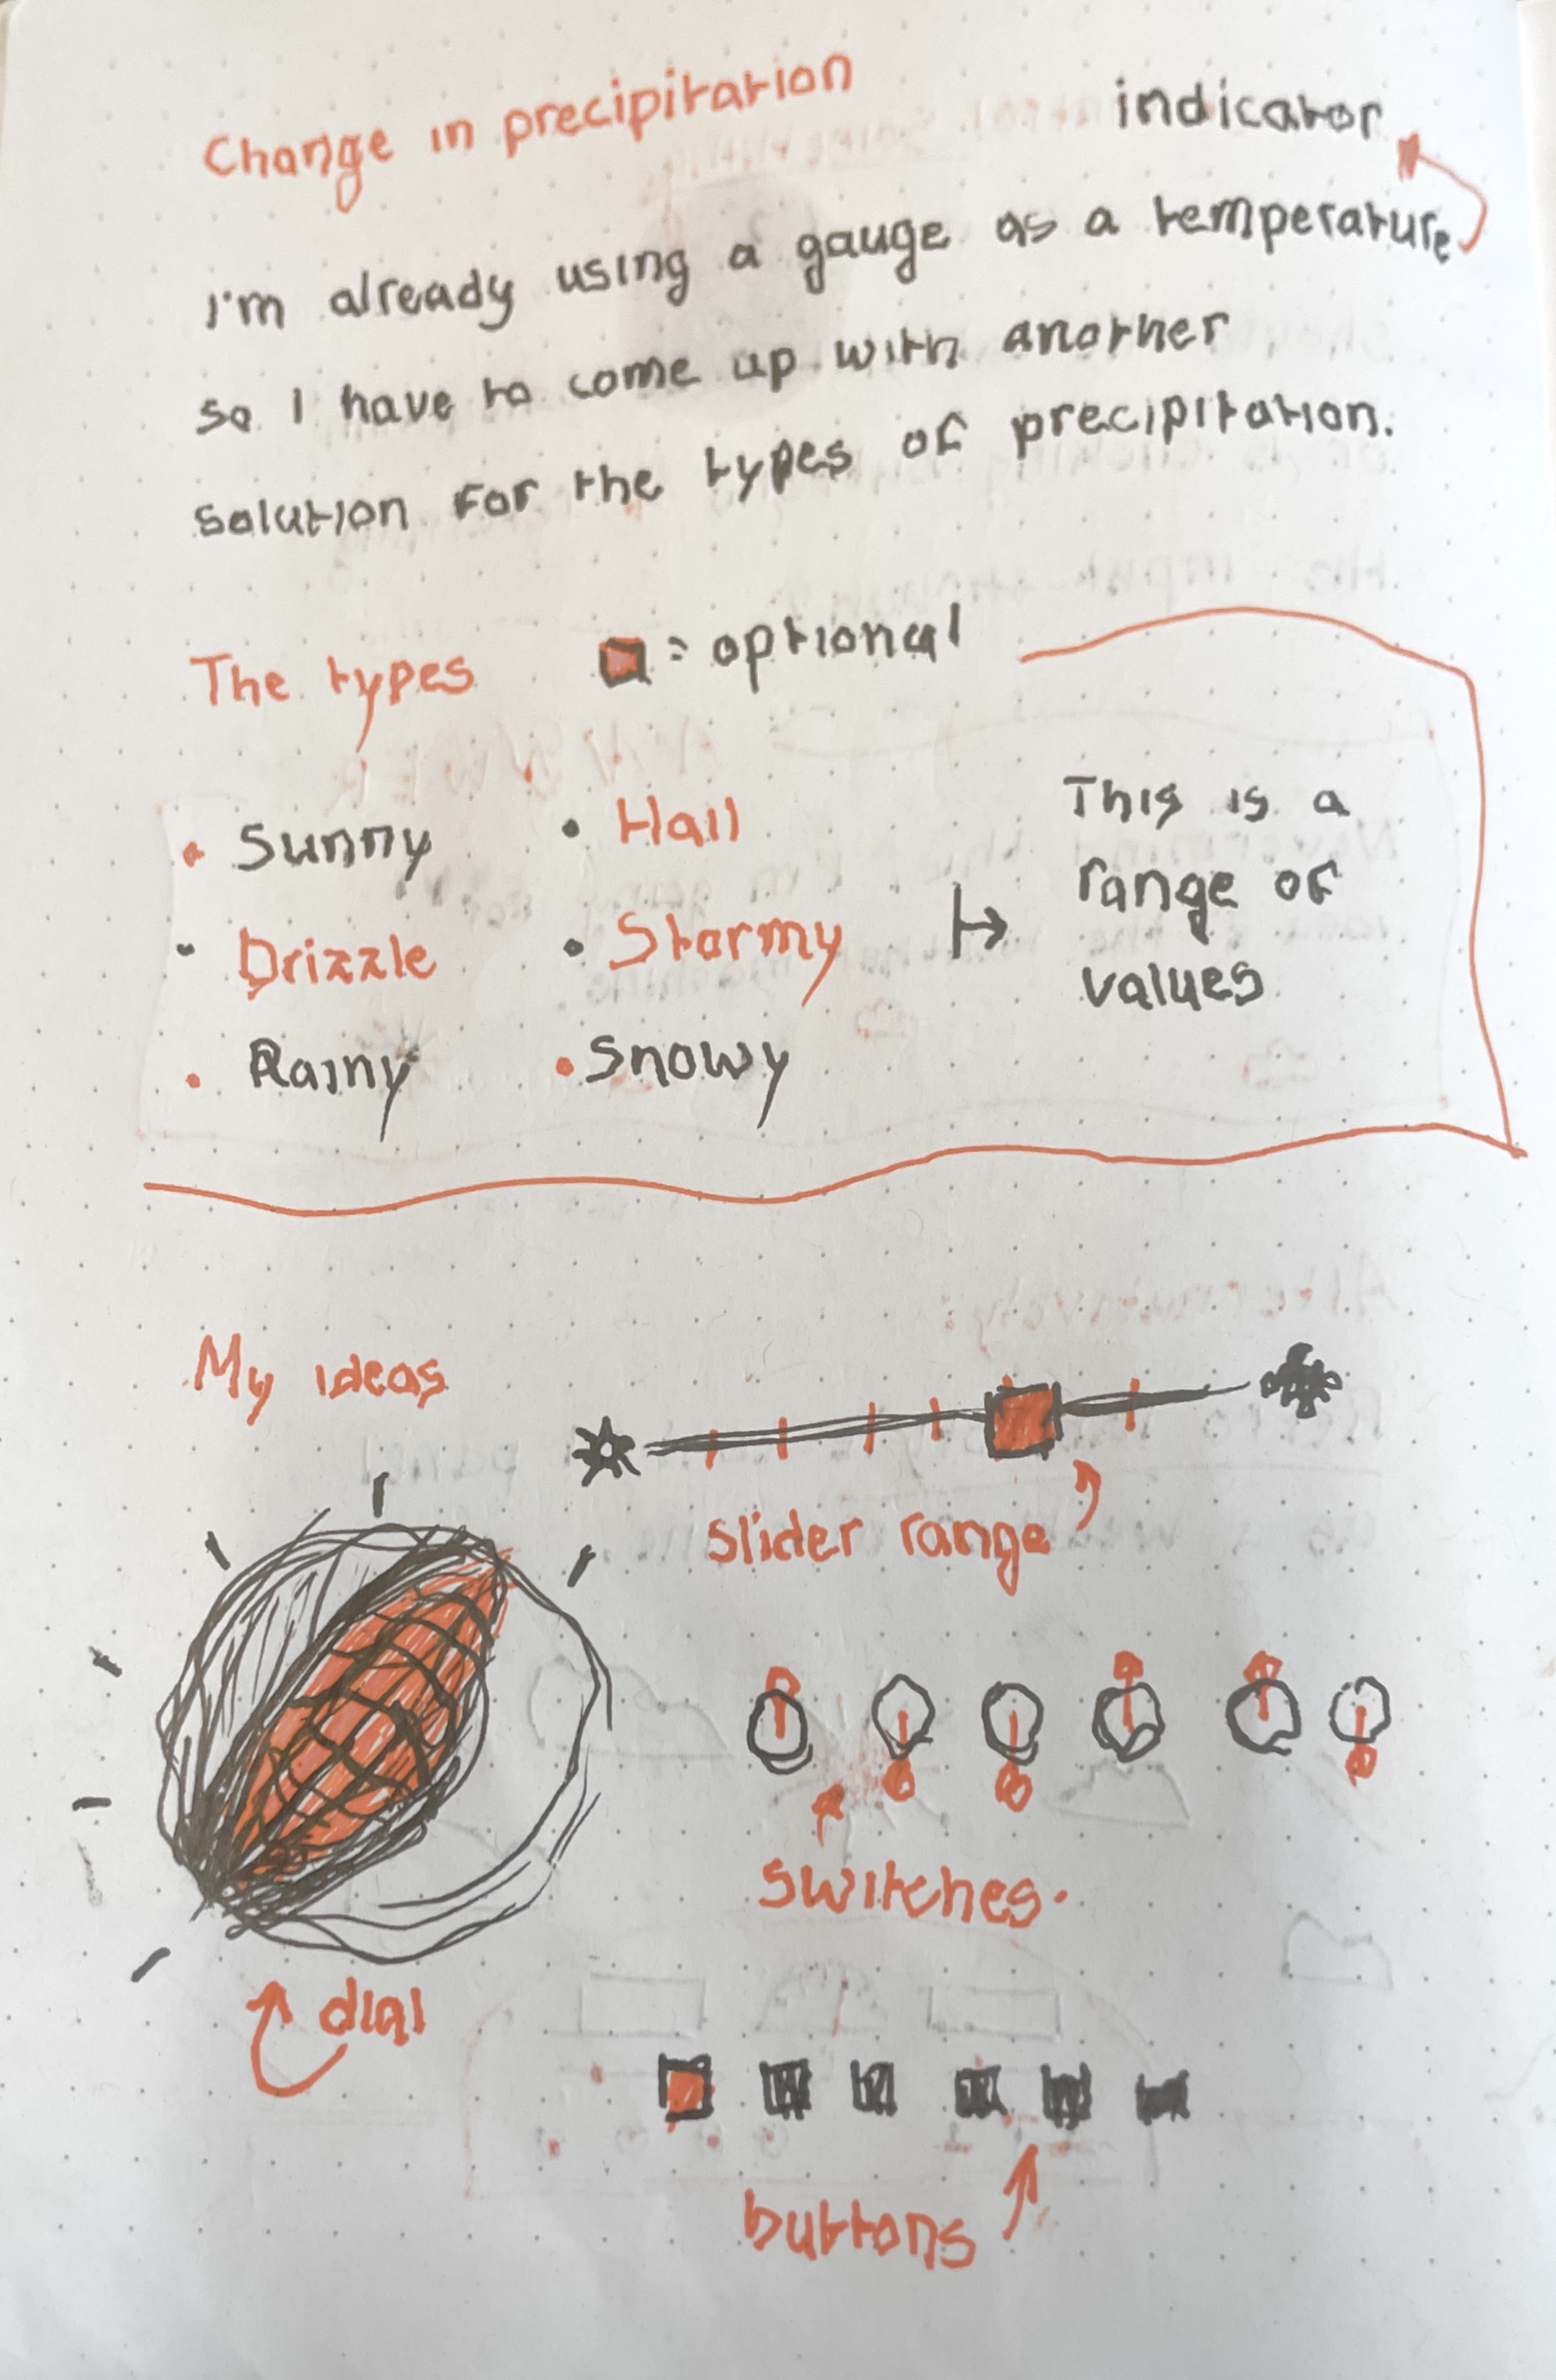 Change in precipitation
indicator
I'm already using a gauge as a temperature
so I have to come up with another
solution for the types of precipitation.
The types
= optional
• Sunny
• Hail
• Drizzle
• Stormy
• Rainy
• Snowy
This is a
range of
values
My ideas
slider range
switches.
dial
buttons